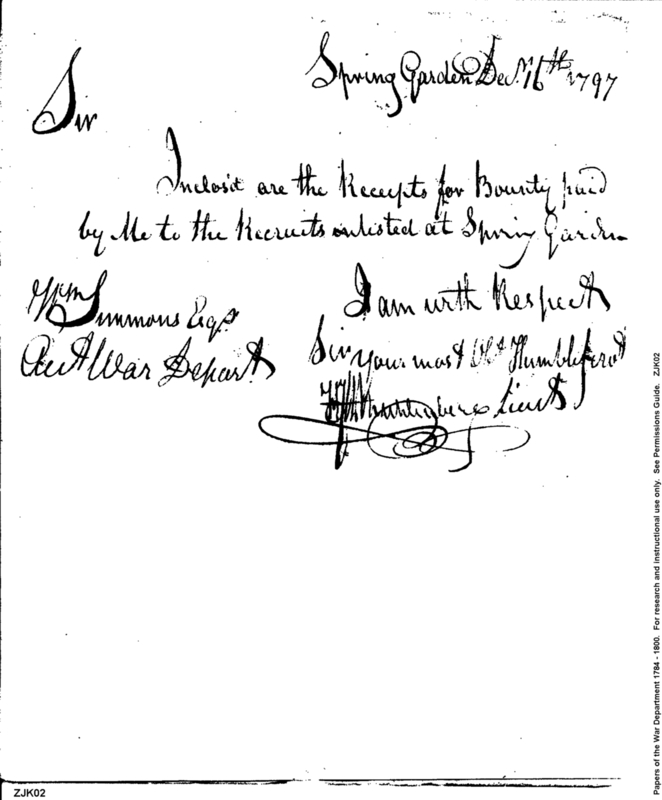 Spring Garden Decr. 16th 1797
Sir
Inclos'd are the Receipts for Bounty paid
by Me to the Recruits enlisted at Spring Garden
I am with Respect
Sir your most Obt Humble Servt
Lieut
Wm Simmons Esqr
Acct War Depart
Papers of the War Department 1784 - 1800. For research and instructional use only. See Permissions Guide. ZJK02
ZJK02